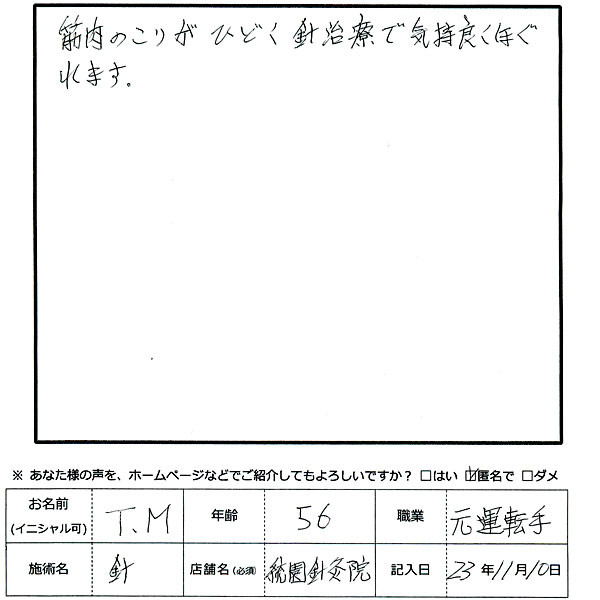 筋肉のこりが ひどく 針治療で気持良くほぐ
れます。
※ あなた様の声を、ホームページなどでご紹介してもよろしいですか？ □はい ☑匿名で □ダメ
お名前 (イニシャル可) T.M 年齢 56 職業 元運転手
施術名 針 店舗名（必須） 針灸院 記入日 23 年 11 月 10 日